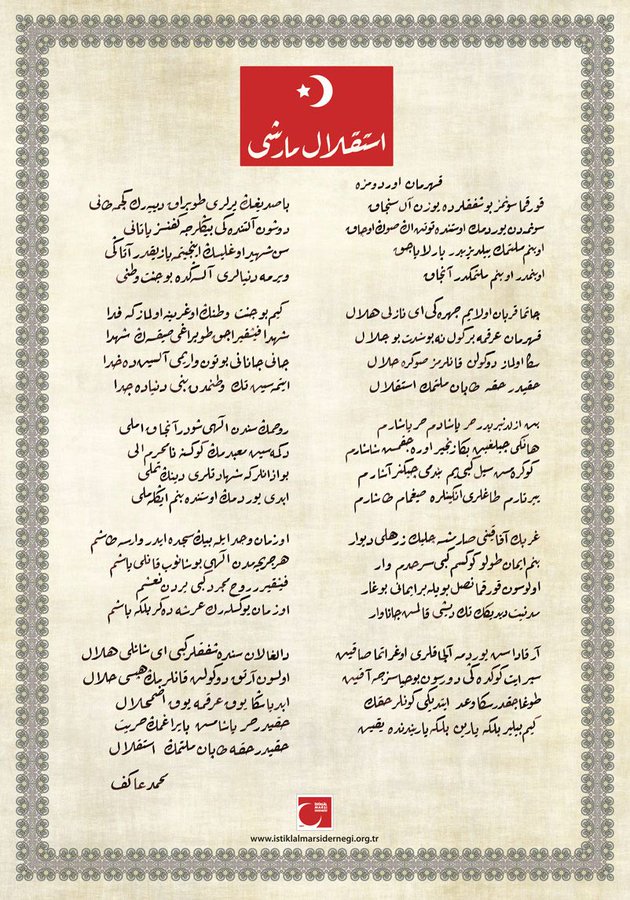 استقلال مارشى
قهرمان اوردومزه
قورقما سونمز بو شفقلرده يوزن آل سنجاق
سونمدن يوردمك اوستنده توتن اڭ صوڭ اوجاق
او بنم ملتمك ييلديزيدر پارلاياجق
او بنمدر او بنم ملتمكدر آنجاق
چاتما قربان اولايم چهره كى اى نازلى هلال
قهرمان عرقمه بر كول نه بو شدت بو جلال
سڭا اولماز دوكولن قانلرمز صوكره حلال
حقيدر حقه طاپان ملتمك استقلال
بن ازلدنبريدر حر ياشادم حر ياشارم
هانكى چيلغين بڭا زنجير اوره جقمش شاشارم
كوكره مش سيل كبى يم بندمى چيكنر آشارم
ييرتارم طاغلرى انكينلره صيغمام طاشارم
غربك آفاقنى صارمشسه چليك زرهلى ديوار
بنم ايمان طولو كوكسم كبى سرحدم وار
اولوسون قورقما نصل بويله بر ايمانى بوغار
مدنيت ديديكك تك ديشى قالمش جاناوار
آرقاداش يوردمه آلچاقلرى اوغراتما صاقين
سپر ايت كوكده كى دورسون بو حياسزجه آقين
طوغاجقدر سڭا وعد ايتديكى كونلر حقك
كيم بيلير بلكه يارين بلكه ياريندنده يقين
باصديغك يرلرى طوپراق دييه رك كچمه طانى
دوشون آلتنده كى بيڭلرجه كفنسز ياتانى
سن شهيد اوغليسك اينجيتمه يازيقدر آتاڭى
ويرمه دنيالرى آلسه كده بو جنت وطنى
كيم بو جنت وطنك اوغرينه اولماز كه فدا
شهدا فيشقيراجق طوپراغى صيقسه ڭ شهدا
جانى جانانى بوتون واريمى آلسين ده خدا
ايتمه سين تك وطنمدن بنى دنياده جدا
روحمك سندن الهى شودر آنجاق املى
دكمه سين معبدمك كوكسنه نامحرم الى
بو اذانلر كه شهادتلرى دينك تملى
ابدى يوردمك اوستنده بنم ايڭله ملى
او زمان وجد ايله بيڭ سجده ايدر وارسه طاشم
هر جريحه مدن الهى بوشانوب قانلى ياشم
فيشقيرر روح مجرد كبى يردن نعشم
او زمان يوكسله رك عرشه دكر بلكه باشم
دالغالان سنده شفقلر كبى اى شانلى هلال
اولسون آرتق دوكولن قانلرمك هپسى حلال
ابديا سڭا يوق عرقمه يوق اضمحلال
حقيدر حر ياشامش بايراغمك حريت
حقيدر حقه طاپان ملتمك استقلال
محمد عاكف
www.istiklalmarsidernegi.org.tr